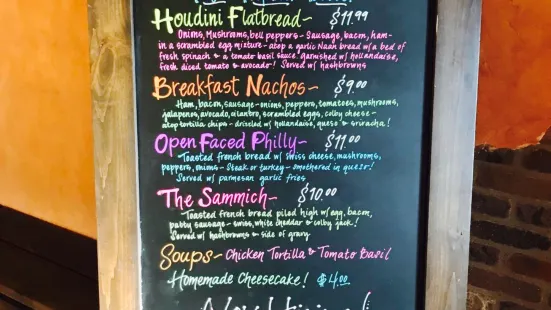 Houdini Flatbread~ $11.99
Onions, Mushrooms, bell peppers - Sausage, bacon, ham-
in a scrambled egg mixture - atop a garlic Naan bread w/a bed of
fresh spinach & a tomato basil sauce garnished w/hollandaise,
fresh diced tomato & avocado! Served w/hashbrowns
Breakfast Nachos~ $9.00
Ham, bacon, sausage - onions, peppers, tomatoes, mushrooms,
jalapenos, avocado, cilantro, scrambled eggs, colby cheese-
atop tortilla chips - drizzled w/hollandaise, queso & sriracha!
Open Faced Philly~ $11.00
Toasted french bread w/swiss cheese, mushrooms,
peppers, onions - Steak or turkey - smothered in queso!
Served w/ parmesan garlic fries
The Sammich~ $10.00
Toasted french bread piled high w/egg, bacon,
patty sausage - swiss, white cheddar & colby jack!
Served w/ hashbrowns & side of gravy
Soups~ Chicken Tortilla & Tomato Basil
Homemade Cheesecake! $4.00